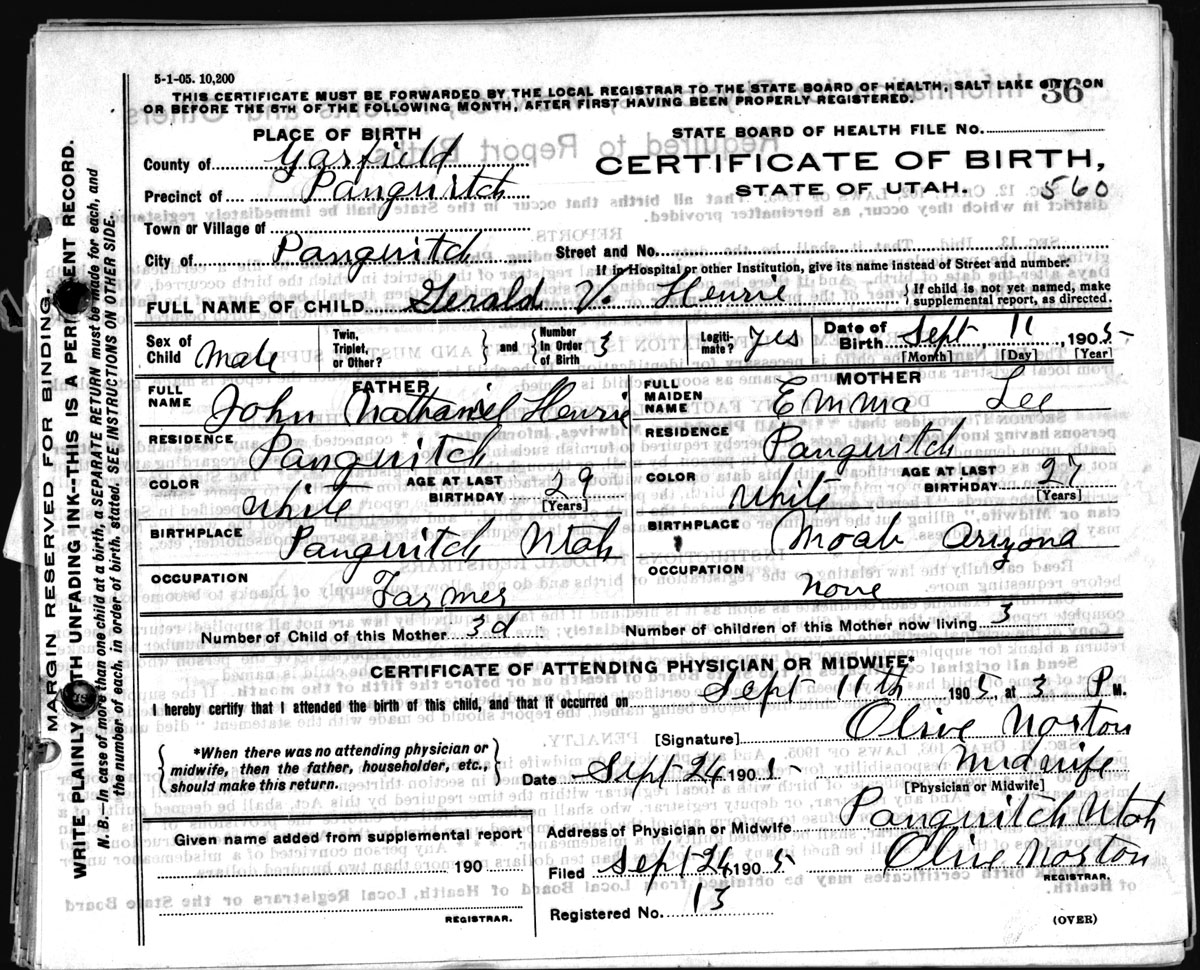 5-1-05. 10,200
THIS CERTIFICATE MUST BE FORWARDED BY THE LOCAL REGISTRAR TO THE STATE BOARD OF HEALTH, SALT LAKE CITY, ON
OR BEFORE THE 5TH OF THE FOLLOWING MONTH, AFTER FIRST HAVING BEEN PROPERLY REGISTERED.
36
PLACE OF BIRTH
County of Garfield
Precinct of Panguitch
Town or Village of
City of Panguitch
STATE BOARD OF HEALTH FILE NO.
CERTIFICATE OF BIRTH,
STATE OF UTAH. 560
Street and No.
If in Hospital or other Institution, give its name instead of Street and number.
FULL NAME OF CHILD Gerald V. Henrie
If child is not yet named, make
supplemental report, as directed.
Sex of Child Male
Twin, Triplet, or Other?
and Number In Order of Birth 3
Legitimate? Yes
Date of Birth Sept 11, 1905
[Month] [Day] [Year]
FATHER
FULL NAME John Nathaniel Henrie
RESIDENCE Panguitch
COLOR White
AGE AT LAST BIRTHDAY 29
[Years]
BIRTHPLACE Panguitch Utah
OCCUPATION Farmer
MOTHER
FULL MAIDEN NAME Emma Lee
RESIDENCE Panguitch
COLOR White
AGE AT LAST BIRTHDAY 27
[Years]
BIRTHPLACE Moab Arizona
OCCUPATION None
Number of Child of this Mother 3d
Number of children of this Mother now living 3
CERTIFICATE OF ATTENDING PHYSICIAN OR MIDWIFE*
I hereby certify that I attended the birth of this child, and that it occurred on Sept 11th 1905, at 3 P.M.
*When there was no attending physician or
midwife, then the father, householder, etc.,
should make this return.
[Signature] Olive Norton
Date Sept 24 1905 Midwife
[Physician or Midwife]
Given name added from supplemental report
190
REGISTRAR.
Address of Physician or Midwife Panguitch Utah
Filed Sept 24, 1905 Olive Norton
REGISTRAR.
Registered No. 13
(OVER)
MARGIN RESERVED FOR BINDING
WRITE PLAINLY WITH UNFADING INK--THIS IS A PERMANENT RECORD.
N. B.--In case of more than one child at a birth, a SEPARATE RETURN must be made for each, and
the number of each, in order of birth, stated. SEE INSTRUCTIONS ON OTHER SIDE.